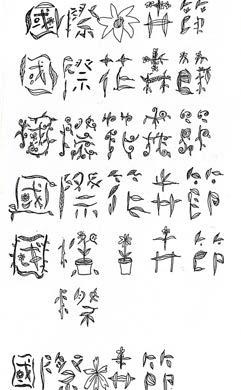 國際花卉節
國際花卉節
國際花卉節
國際花卉節
國際花卉節
際
國際花卉節